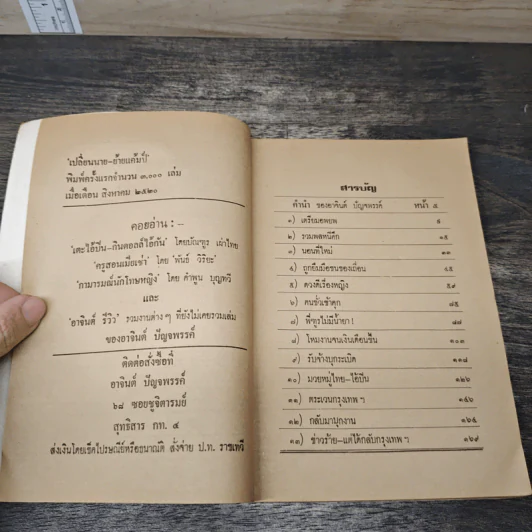 'เปลี่ยนนาย-ย้ายแค้มป์'
พิมพ์ครั้งแรกจำนวน ๓,๐๐๐ เล่ม
เมื่อเดือน สิงหาคม ๒๕๒๐
คอยอ่าน : —
'เตะไอ้ปื้น-กินคอลส์ไอ้กัน' โดยบัณฑูร เผ่าไทย
'ครูสอนเมียเช่า' โดย 'พันธ์ วิริยะ'
'กามารมณ์นักโทษหญิง' โดย คำพูน บุญทวี
และ
'อาจินต์ รีวิว' รวมงานต่าง ๆ ที่ยังไม่เคยรวมเล่ม
ของอาจินต์ ปัญจพรรค์
ติดต่อสั่งซื้อที่
อาจินต์ ปัญจพรรค์
๖๘ ซอยชูจิตารมย์
สุทธิสาร กท. ๔
ส่งเงินโดยเช็คไปรษณีย์หรือธนาณัติ สั่งจ่าย ป.ท. ราชเทวี
สารบัญ
คำนำ ของอาจินต์ ปัญจพรรค์ หน้า
๑) เตรียมอพยพ
๒) รวมพลหนีคึก
๓) นอนที่ใหม่
๔) ถูกยืมมือชนของเถื่อน
๕) ดวงดีเรื่องหญิง
๖) คนชั่วเข้าคุก
๗) พี่ฑูรไม่มีน้ำยา !
๘) โหมงานจนเงินเดือนขึ้น ๑๐๓
๙) รับจ้างบุกระเบิด ๑๑๘
๑๐) มวยหมู่ไทย-ไอ้ปืน ๑๒๖
๑๑) ตระเวนกรุงเทพ ฯ ๑๔๖
๑๒) กลับมาบุกงาน ๑๖๕
๑๓) ข่าวร้าย-แต่ได้กลับกรุงเทพ ฯ ๑๖๙